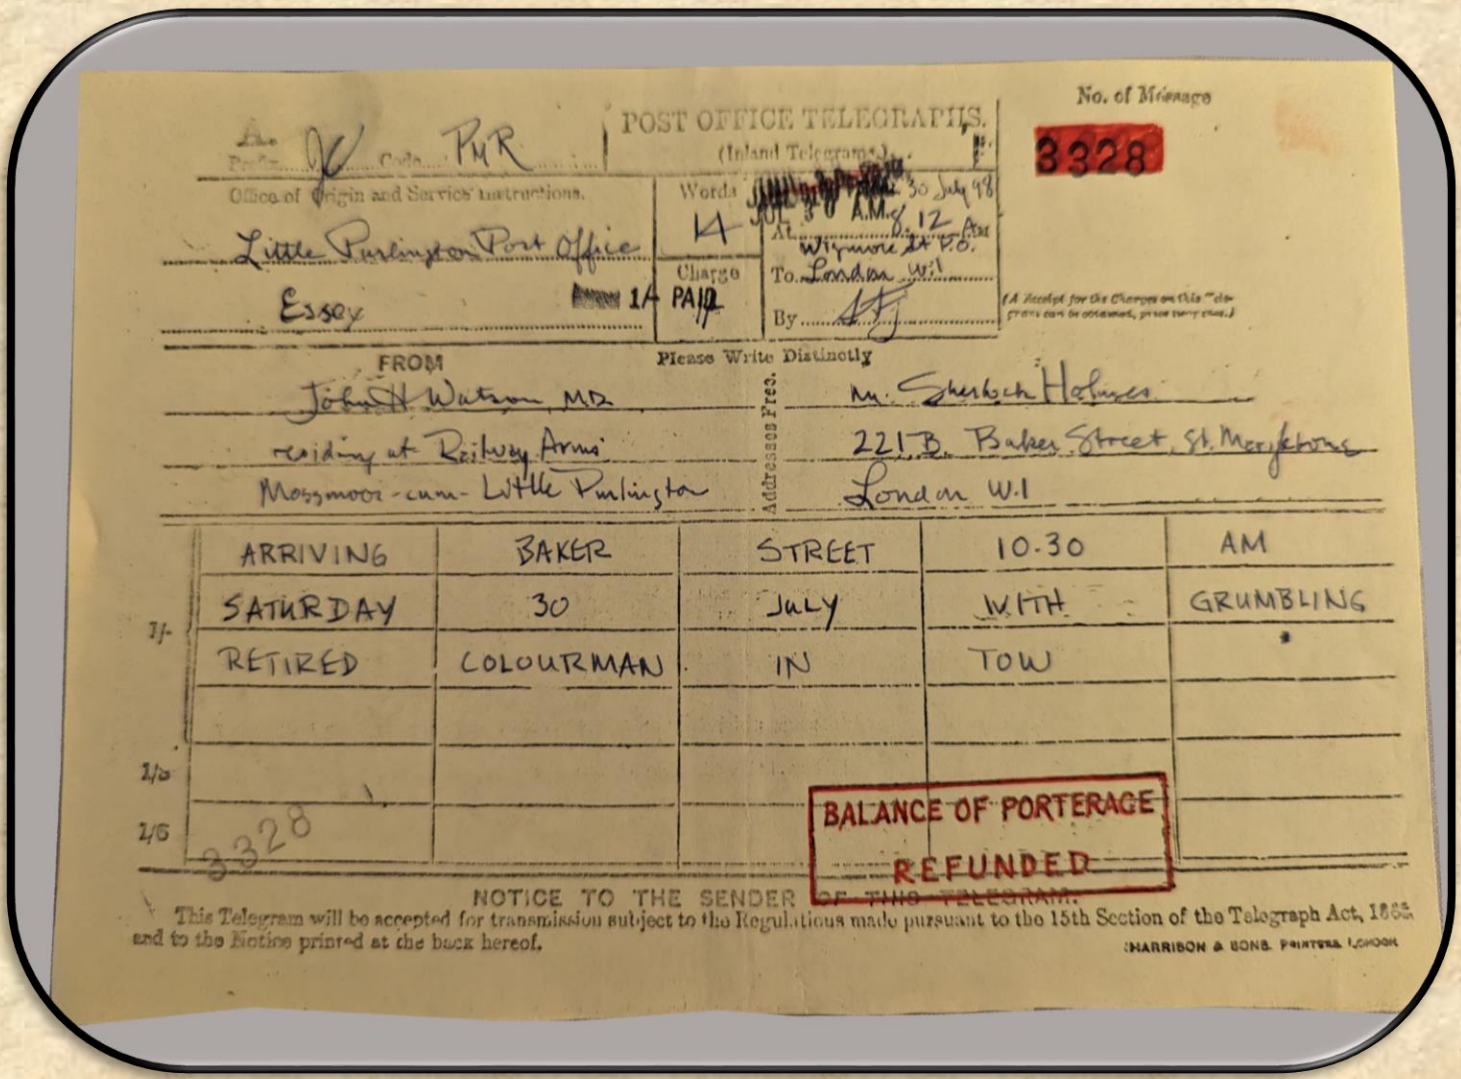 No. of Message
3328
A. JC Code PMR
POST OFFICE TELEGRAPHS.
(Inland Telegrams.)
Office of Origin and Service Instructions.
Little Purlington Post Office
Essex 1/-
Words
14
Charge
PAID
30 July 98
JUL 30 A.M.
At 8.12 AM
Wigmore St P.O.
To London W.1
By
(A Receipt for the Charges on this Tele-
gram can be obtained, price
FROM
Please Write Distinctly
John H Watson, M.D.
residing at Railway Arms
Mossmoor-cum-Little Purlington
Addresses Free.
Mr. Sherlock Holmes
221B. Baker Street, St. Marylebone
London W.1
ARRIVING BAKER STREET 10.30 AM
SATURDAY 30 JULY WITH GRUMBLING
1/-
RETIRED COLOURMAN IN TOW
1/6
3328
BALANCE OF PORTERAGE
REFUNDED
NOTICE TO THE SENDER OF THIS TELEGRAM.
This Telegram will be accepted for transmission subject to the Regulations made pursuant to the 15th Section of the Telegraph Act,
and to the Notice printed at the back hereof.
HARRISON & SONS. PRINTERS LONDON